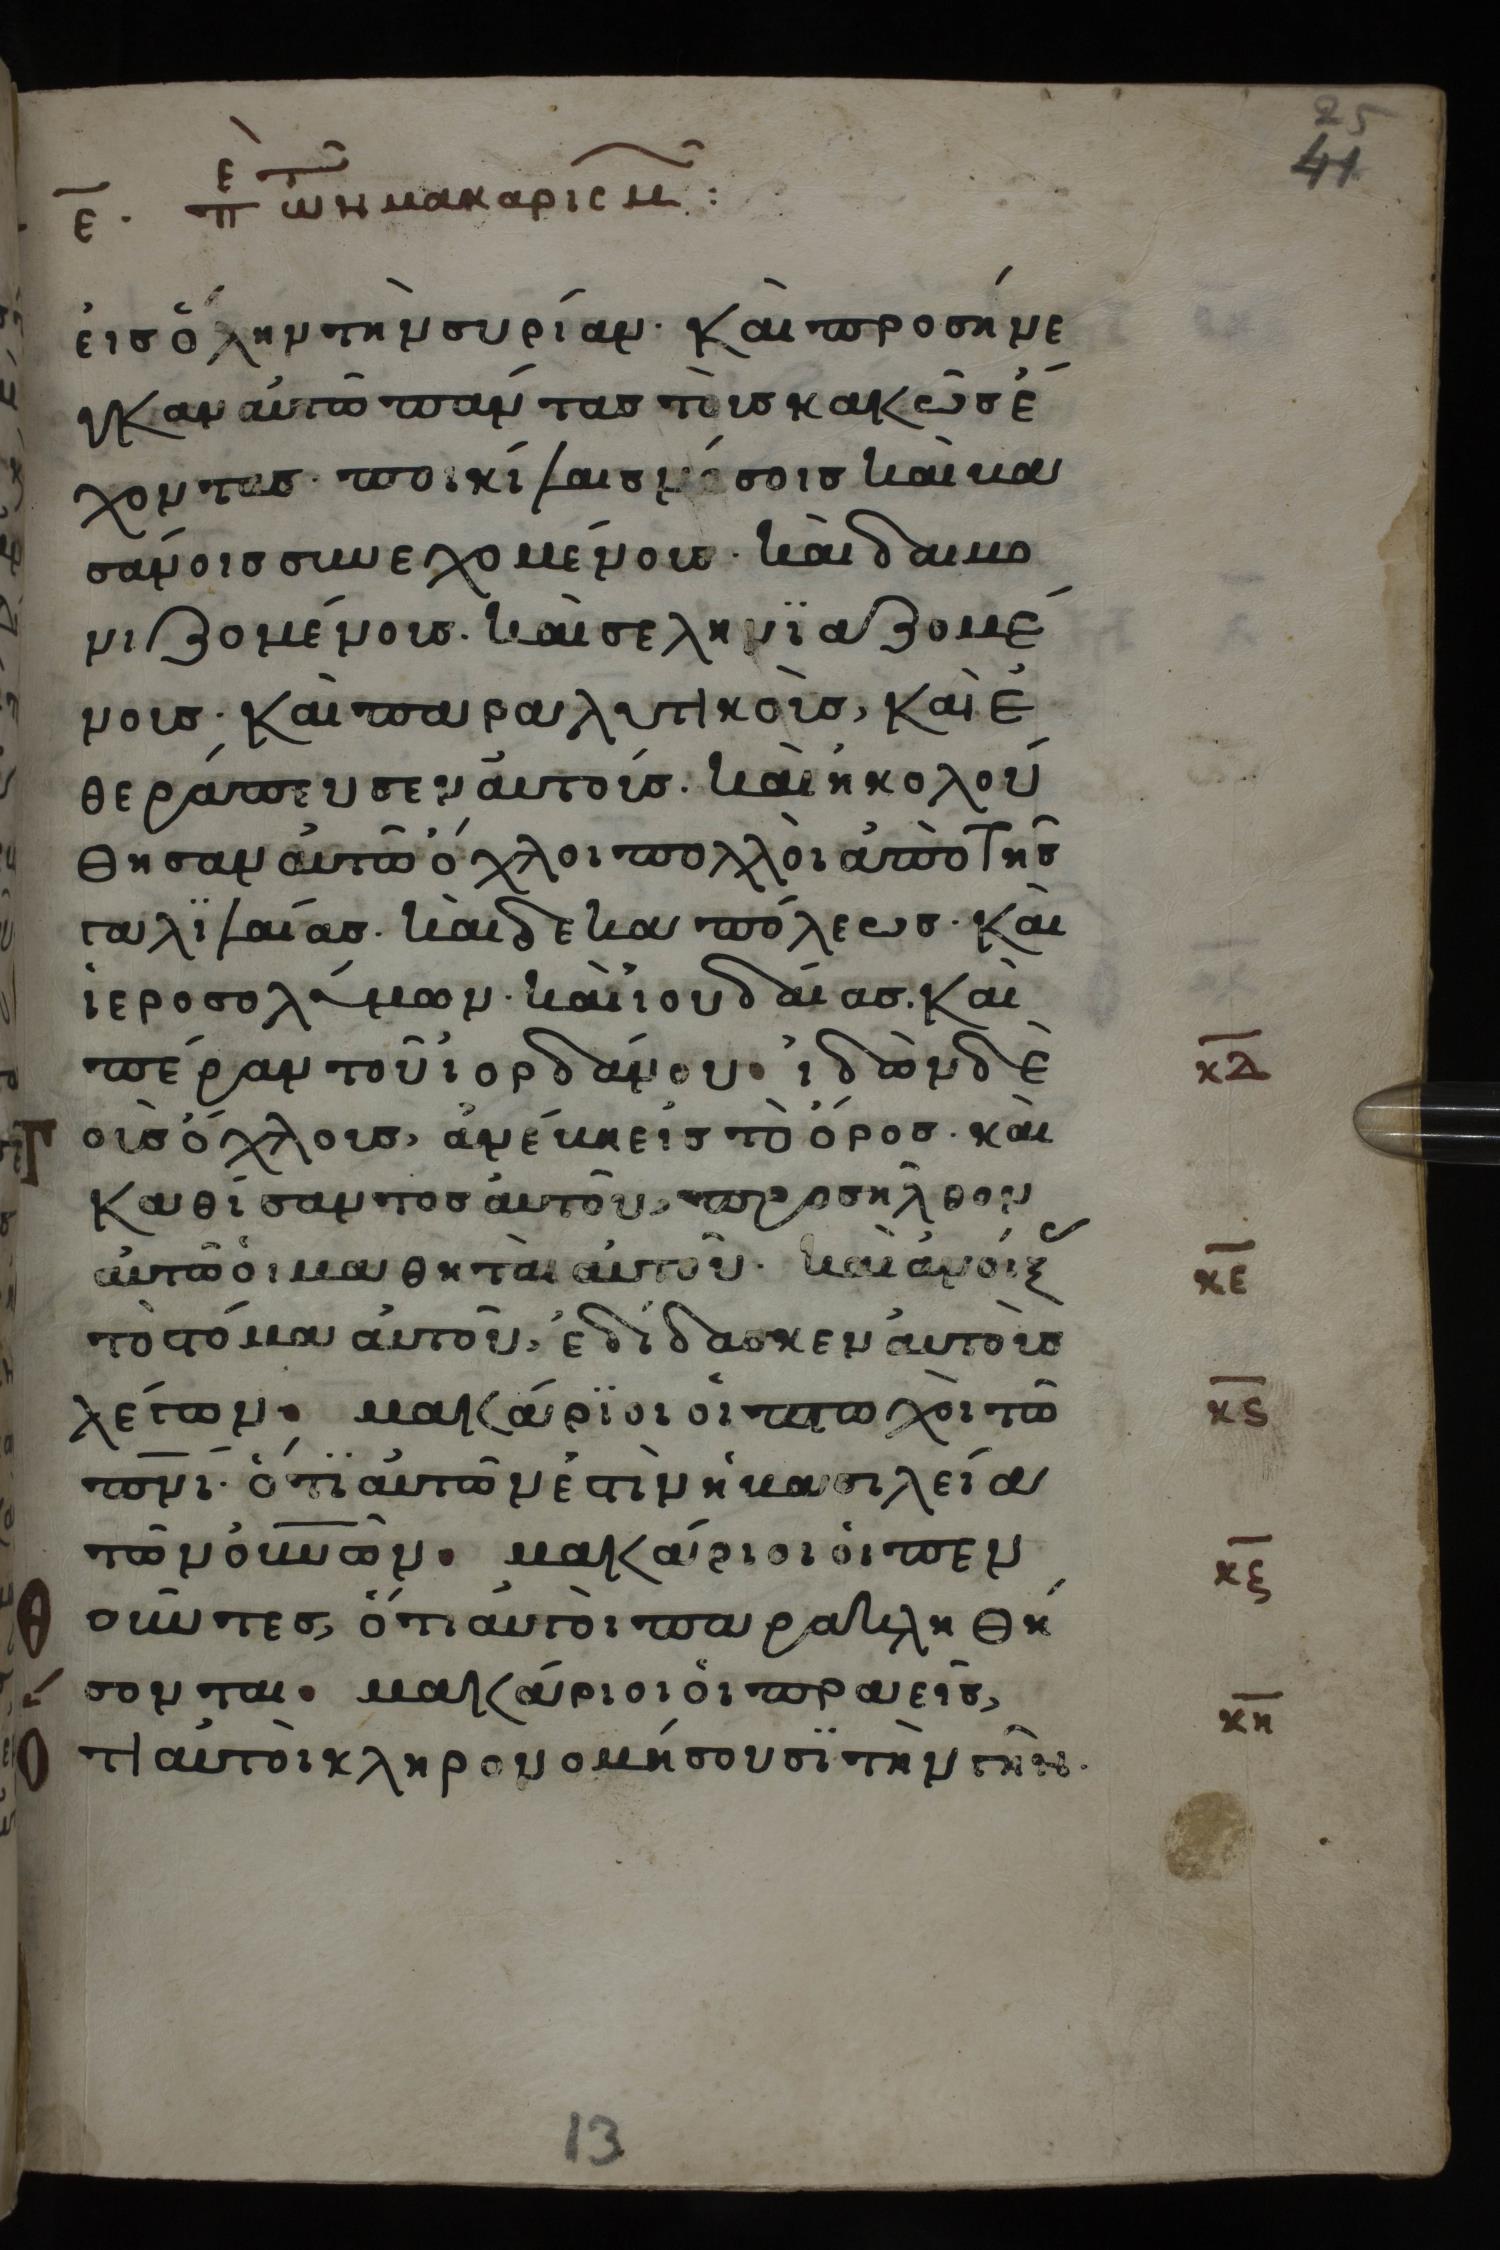 25
41
ε̅ · ἐπ τῶν μακαρισμ̃ :
εἰσ ὅλην τὴν συρίαν · καὶ προσήνε
γκαν αὐτῶ πάντασ τοὺσ κακῶσ ἔ
χοντασ · ποικίλαισ νόσοισ καὶ βα
σάνοισ συνεχομένουσ · καὶ δαιμο
νιζομένουσ · καὶ σεληνϊαζομέ
νουσ · καὶ παραλυτικοὺσ, καὶ ἐ
θεράπευσεν αὐτούσ · καὶ ἠκολού
θησαν αὐτῶ ὄχλοι πολλοὶ ἀπὸ τῆσ
γαλϊλαίασ · καὶ δεκαπόλεωσ · καὶ
ἱεροσολύμων · καὶ ἰουδαίασ · καὶ
πέραν τοῦ ἰορδάνου · ἰδὼν δὲ
κδ
τοὺσ ὄχλουσ, ἀνέβη εἰσ τὸ ὄροσ · καὶ
καθίσαντοσ αὐτοῦ, προσῆλθον
αὐτῶ οἱ μαθηταὶ αὐτοῦ · καὶ ἀνοίξ
κε
τὸ στόμα αὐτοῦ, ἐδίδασκεν αὐτοὺσ
λέγων · μακάρϊοι οἱ πτωχοὶ τῶ
κς
π̅ν̅ι̅ · ὅτϊ αὐτῶν ἐστὶν ἡ βασιλεία
τῶν ο̅υ̅ν̅ῶν · μακάριοι οἱ πεν
κζ
θοῦντεσ, ὅτι αὐτοὶ παρακληθή
σονται · μακάριοι οἱ πραεῖσ,
κη
ὅτι αὐτοὶ κληρονομήσουσϊ τὴν γῆν ·
13